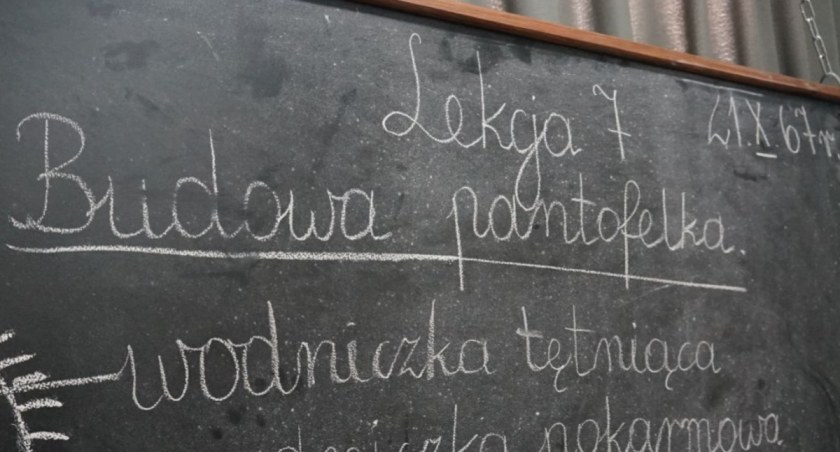 Lekcja 7 21.X.67r.
Budowa pantofelka.
wodniczka tętniąca
wodniczka pokarmowa